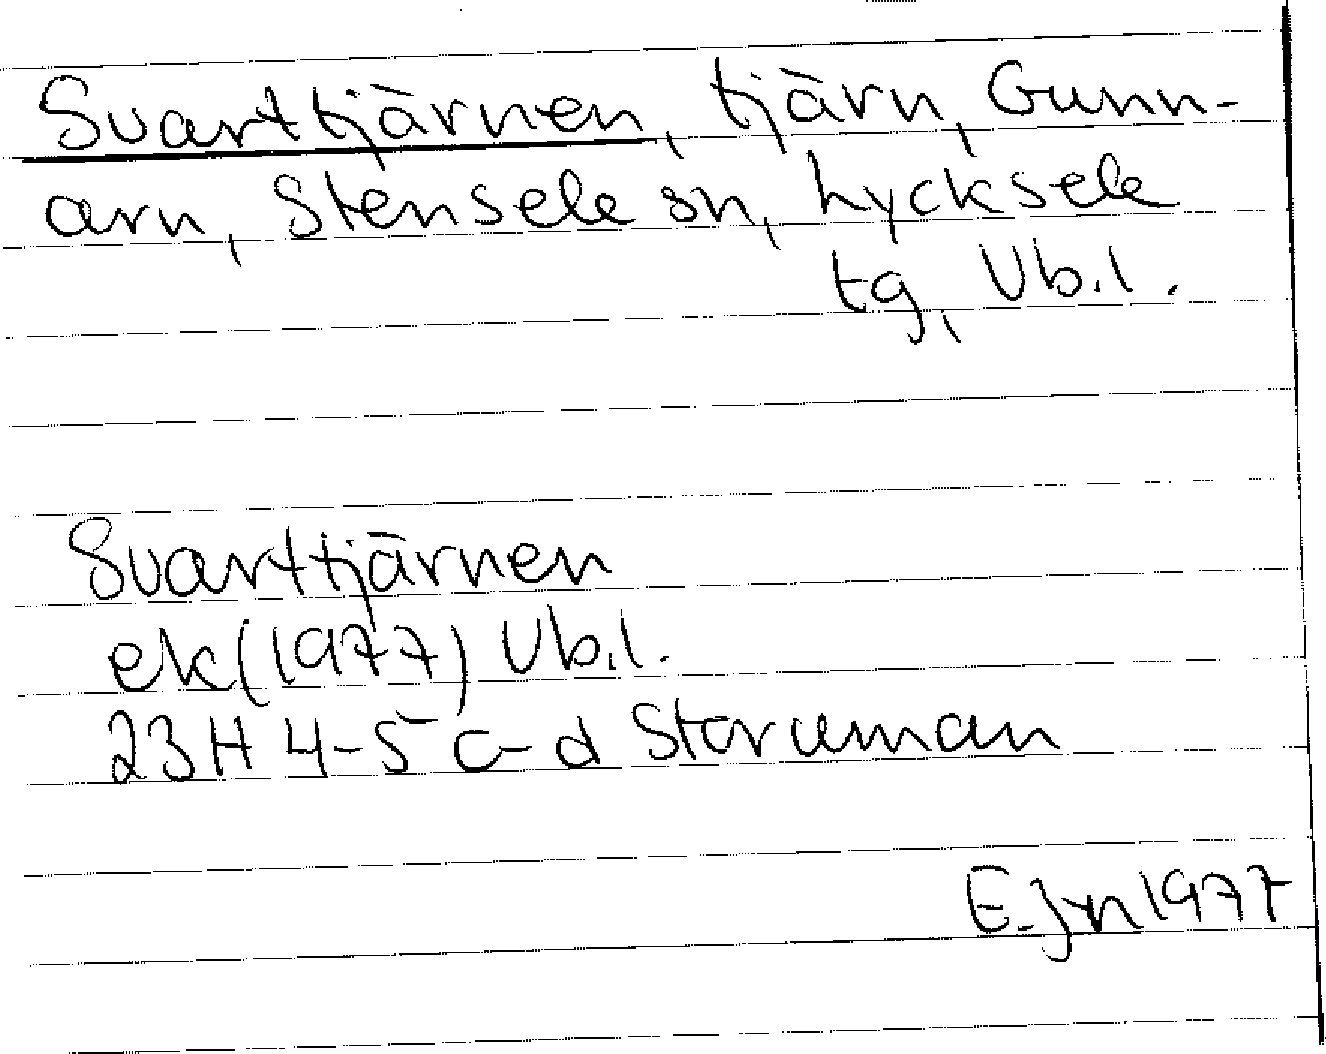 Svarttjärnen, tjärn, Gunn-
arn, Stensele sn, Lycksele
tg, Vb.l.
Svarttjärnen
ek(1977) Vb.l.
23H 4-5 c-d Storuman
E.Jn 1977